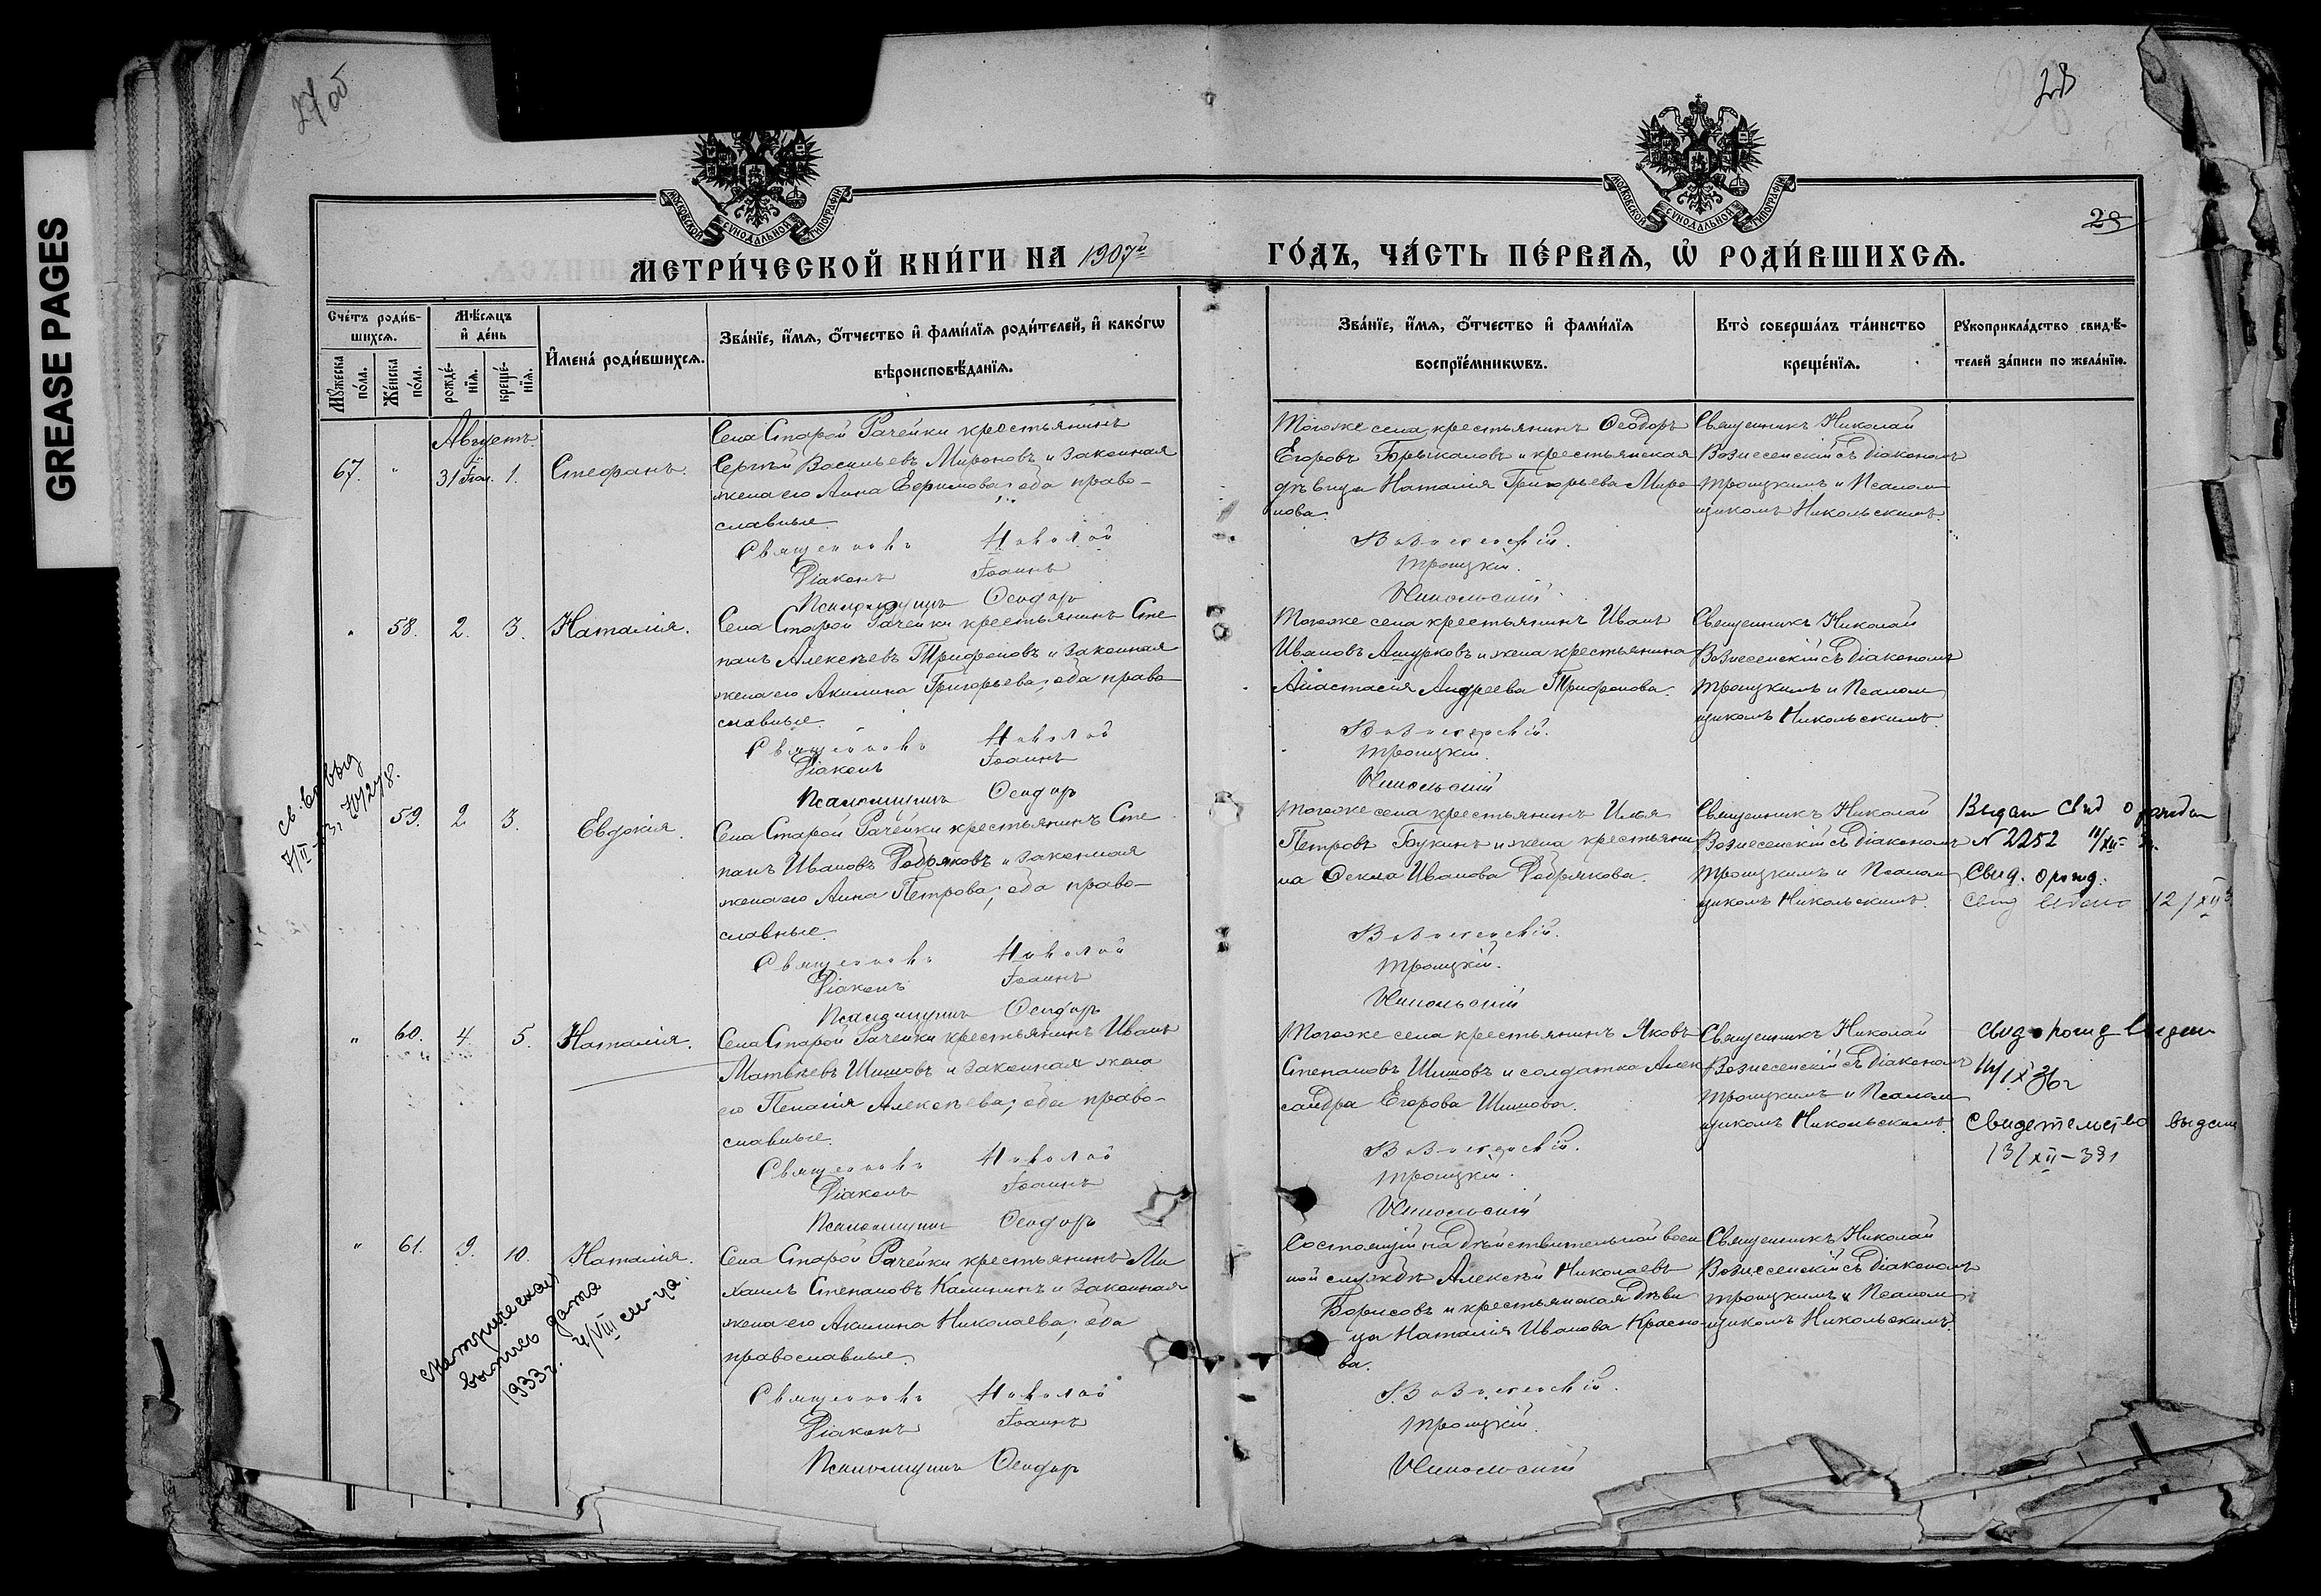 GREASE PAGES
27об
28
МОСКОВСКОЙ СУНОДАЛЬНОЙ ТИПОГРАФІИ
МОСКОВСКОЙ СУНОДАЛЬНОЙ ТИПОГРАФІИ
28
МЕТРИ́ЧЕСКОЙ КНИ́ГИ НА 1907й
ГО́ДЪ, ЧА́СТЬ ПЕ́РВАѦ, Ѡ҆ РОДИ́ВШИХСѦ.
Сче́тъ роди́в-
шихсѧ.
Мꙋ́жеска по́ла.
Же́нска по́ла.
Мѣ́сѧцъ
и҆ де́нь
рожде́-
нїѧ.
креще́-
нїѧ.
И҆мена́ роди́вшихсѧ.
Зва́нїе, и҆́мѧ, ѻ҆́тчество и҆ фами́лїѧ роди́телей, и҆ како́гѡ
вѣроисповѣ́данїѧ.
Зва́нїе, и҆́мѧ, ѻ҆́тчество и҆ фами́лїѧ
воспрїе́мникѡвъ.
Кто̀ соверша́лъ та́инство
креще́нїѧ.
Рꙋкоприкла́дство свидѣ́-
телей за́писи по жела́нїю.
Августъ.
67. " 31 Іюл. 1. Стефанъ.
Села Старой Рачейки крестьянинъ
Сергѣй Васильевъ Мироновъ и законная
жена его Анна Ефимова; оба право-
славные.
Священникъ Николай
Діаконъ Іоаннъ
Псаломщикъ Ѳеодоръ
Тогоже села крестьянинъ Ѳеодоръ
Егоровъ и крестьянская
дѣвица Наталія Григорьева Миро
нова.
Вознесенскій.
Троицкій.
Никольскій.
Священникъ Николай
Вознесенскій съ діакономъ
Троицкимъ и Псалом
щикомъ Никольскимъ.
" 58. 2. 3. Наталія.
Села Старой Рачейки крестьянинъ Сте
панъ Алексѣевъ Трифоновъ и законная
жена его Акилина Григорьева; оба право-
славные.
Священникъ Николай
Діаконъ Іоаннъ
Псаломщикъ Ѳеодоръ
Тогоже села крестьянинъ Иванъ
Ивановъ Ашурковъ и жена крестьянина
Анастасія Андреева Трифонова.
Вознесенскій.
Троицкій.
Никольскій
Священникъ Николай
Вознесенскій съ діакономъ
Троицкимъ и Псалом
щикомъ Никольскимъ.
59. 2. 3. Евдокія.
Села Старой Рачейки крестьянинъ Сте
панъ Ивановъ Добряковъ и законная
жена его Анна Петрова; оба право-
славные.
Священникъ Николай
Діаконъ Іоаннъ
Псаломщикъ Ѳеодоръ
Тогоже села крестьянинъ Илья
Петровъ Букинъ и жена крестьяни
на Ѳекла Иванова Добрякова.
Вознесенскій.
Троицкій.
Никольскій
Священникъ Николай
Вознесенскій съ діакономъ
Троицкимъ и Псалом
щикомъ Никольскимъ.
Выдан свид о рожден
N 2252 11/XII-
Свид. о рожд.
Свид 12/XII
" 60. 4. 5. Наталія.
Села Старой Рачейки крестьянинъ Иванъ
Матвѣевъ Шишовъ и законная жена
его Пелагія Алексѣева; оба право-
славные.
Священникъ Николай
Діаконъ Іоаннъ
Псаломщикъ Ѳеодоръ
Тогоже села крестьянинъ Яковъ
Степановъ Шишовъ и солдатка Алек
сандра Егорова Шишова.
Вознесенскій.
Троицкій.
Никольскій
Священникъ Николай
Вознесенскій съ діакономъ
Троицкимъ и Псалом
щикомъ Никольскимъ.
Свид о рожд выдан
IX 36г
Свидетельство выдан
13/XII-39г
" 61. 9. 10. Наталія.
Села Старой Рачейки крестьянинъ Ми
хаилъ Степановъ Калининъ и законная
жена его Акилина Николаева; оба
православные.
Священникъ Николай
Діаконъ Іоаннъ
Псаломщикъ Ѳеодоръ
Состоящій на дѣйствительной воен
ной службѣ Алексѣй Николаевъ
Борисовъ и крестьянская дѣви
ца Наталія Иванова Красно
ва.
Вознесенскій.
Троицкій.
Никольскій
Священникъ Николай
Вознесенскій съ діакономъ
Троицкимъ и Псалом
щикомъ Никольскимъ.
Метрическая
выпись дата
1933г. 4/VIII м-ца.